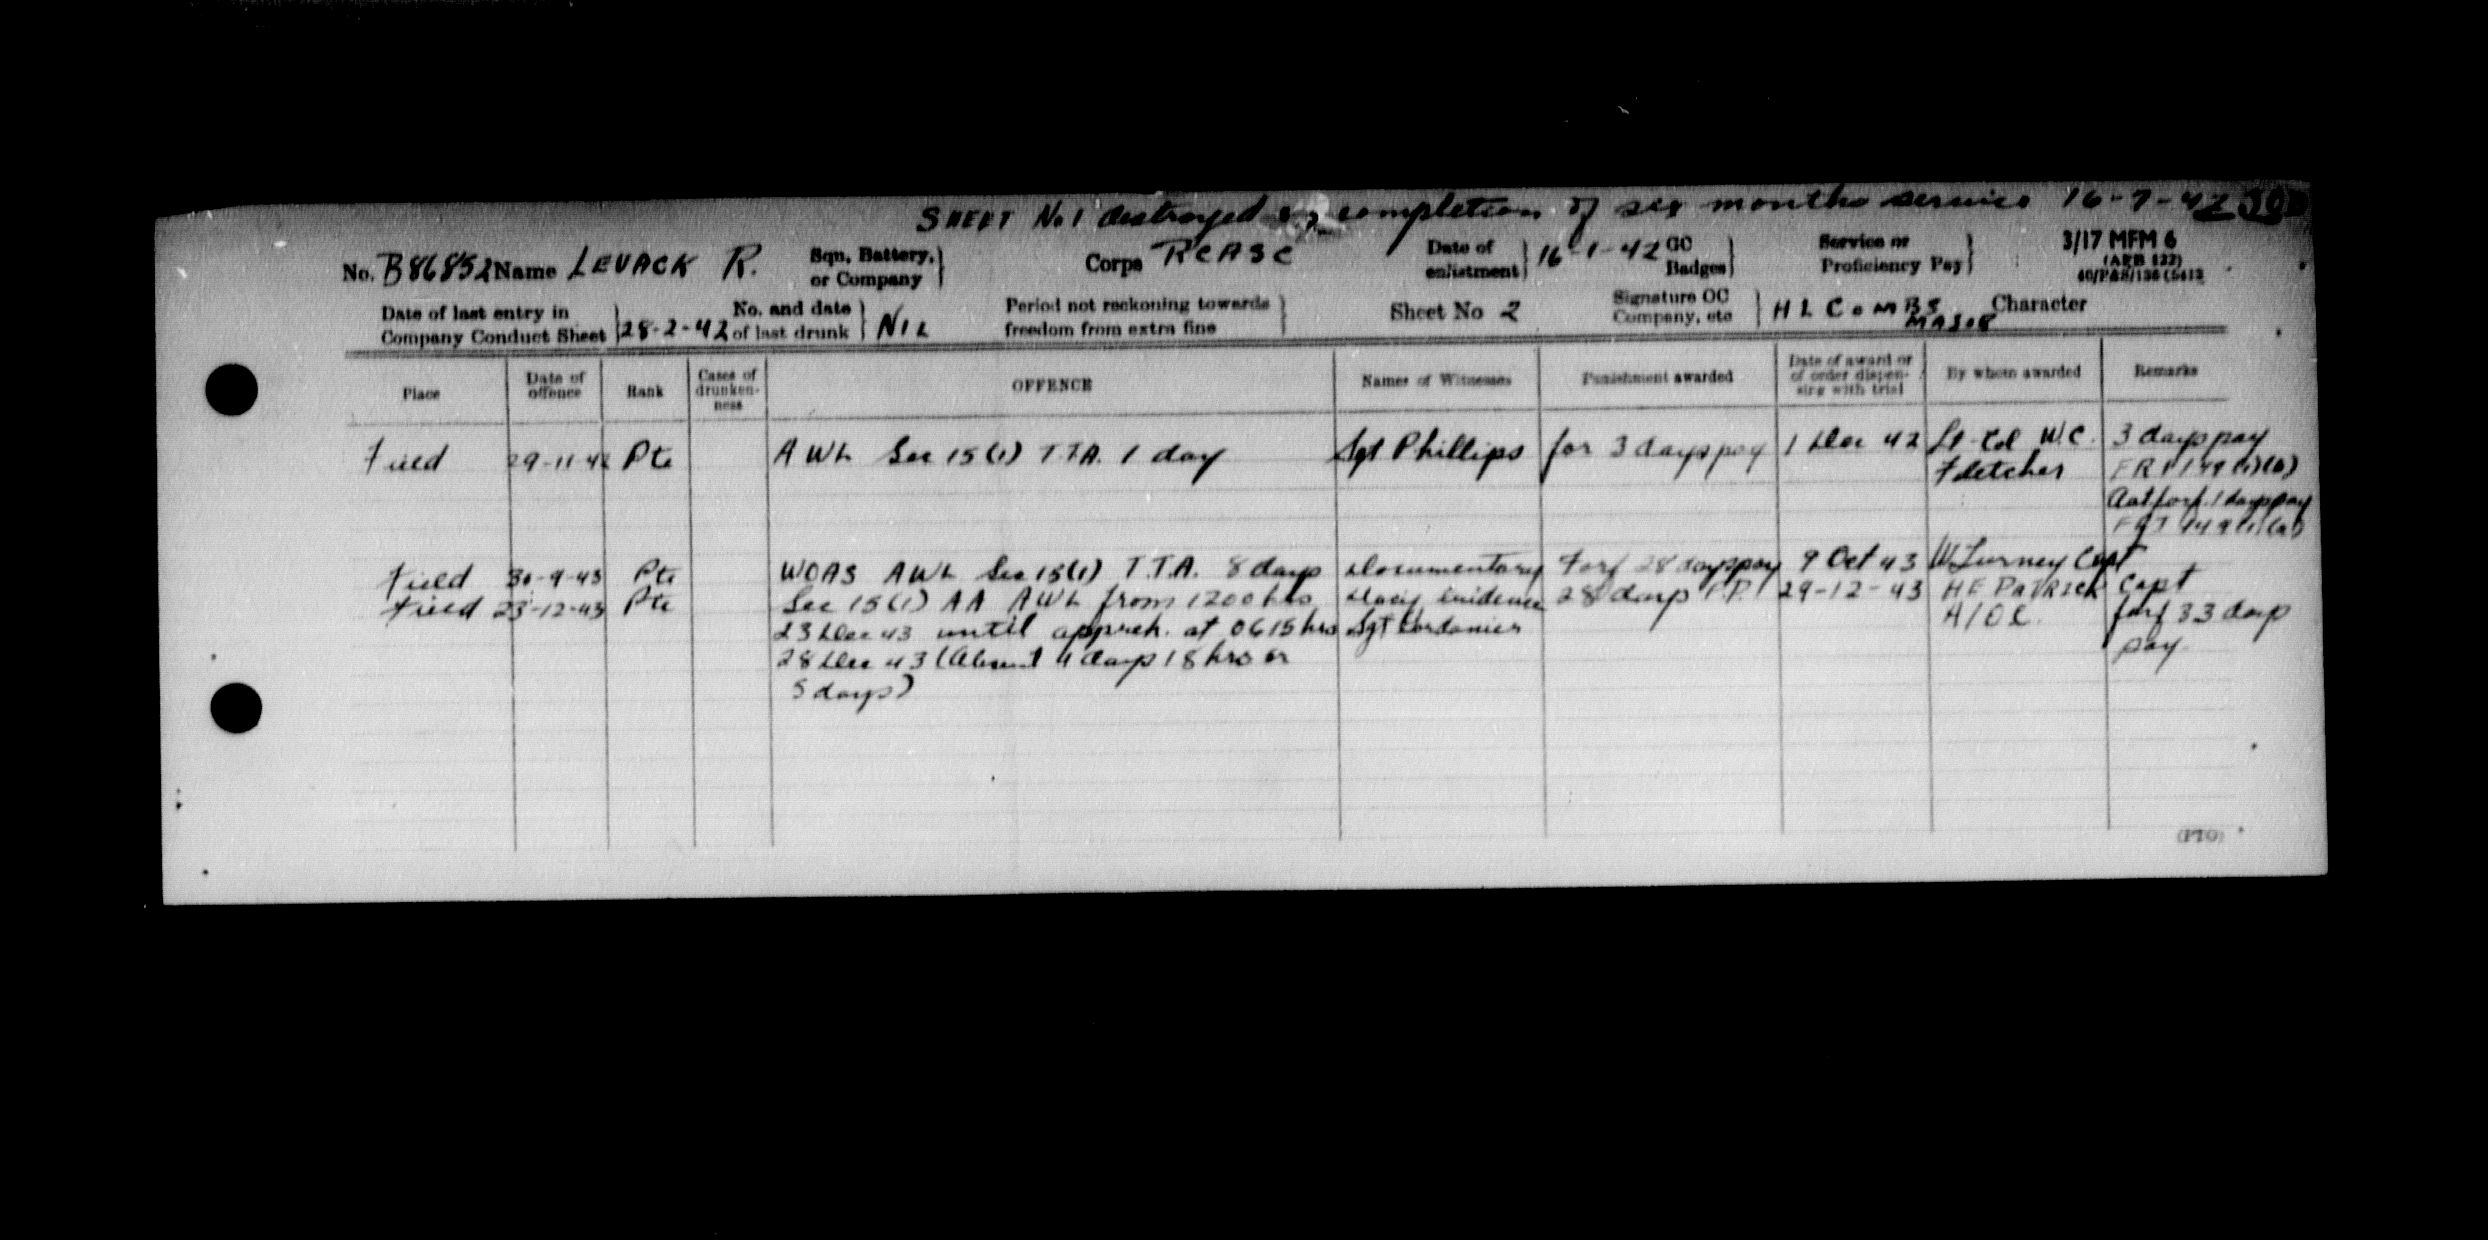 SHEET No.1 destroyed completion of six months service 16-7-42
No. B86852 Name LEVACK R. Sqn, Battery, or Company Corps RCASC Date of enlistment 16-1-42 GC Badges Service or Proficiency Pay 3/17 MFM 6
(AFB 122)
Date of last entry in Company Conduct Sheet 28-2-42 No. and date of last drunk NIL Period not reckoning towards freedom from extra fine Sheet No 2 Signature OC Company, etc H L COMBS MAJOR Character
Place Date of offence Rank Cases of drunken-ness OFFENCE Names of Witnesses Punishment awarded Date of award or of order dispen-sing with trial By whom awarded Remarks
Field 29-11-42 Pte AWL Sec 15(1) T.T.A. 1 day Sgt Phillips for 3 days pay 1 Dec 42 Lt-Col W.C. 3 days pay
Fletcher
Aut forf. 1 days pay
Field 30-9-43 Pte WOAS AWL Sec 15(1) T.T.A. 8 days Documentary Forf 28 days pay 9 Oct 43 Capt
Field 23-12-43 Pte Sec 15(1) AA AWL from 1200 hrs evidence 28 days F.P. 29-12-43 HE PATRICK Capt
23 Dec 43 until appreh. at 0615 hrs Sgt A/OC. forf 33 days
28 Dec 43 (Absent 4 days 18 hrs or pay
5 days)
(PTO)